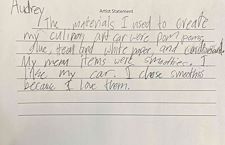 Audrey
Artist Statement
The materials I used to create
my culinary art car were pom poms,
glue, tead lard white paper, and cardboard.
My menu items were smoothies. I
like my car. I chose smoothies
because I love them.